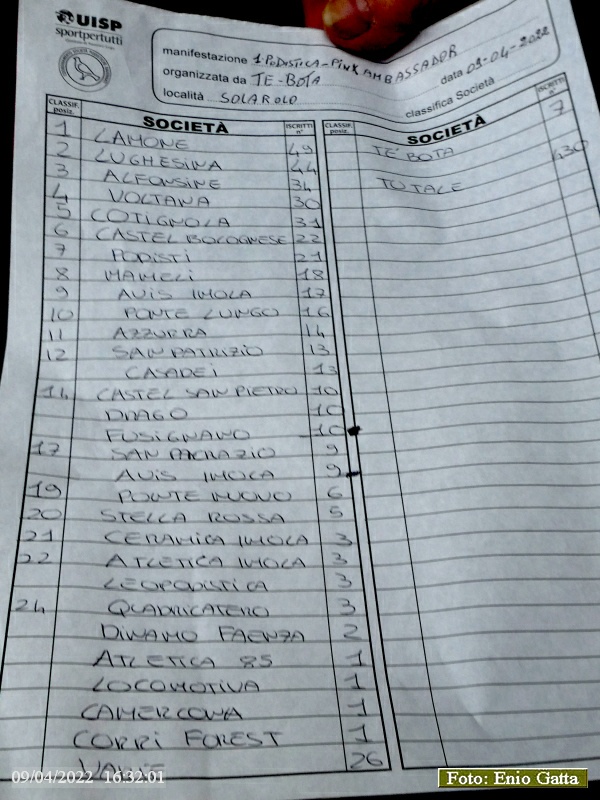 UISP
sportpertutti
manifestazione 1ª PODISTICA - PINK AMBASSADOR
organizzata da TE-BOTA data 09-04-2022
località SOLAROLO classifica Società
CLASSIF. posiz. SOCIETÀ ISCRITTI n°
1 LAMONE 49
2 LUGHESINA 44
3 ALFONSINE 34
4 VOLTANA 30
5 COTIGNOLA 31
6 CASTEL BOLOGNESE 22
7 PODISTI 21
8 MAMELI 18
9 AVIS IMOLA 17
10 PONTE LUNGO 16
11 AZZURRA 14
12 SAN PATRIZIO 13
CASADEI 13
14 CASTEL SAN PIETRO 10
DRAGO 10
FUSIGNANO 10
17 SAN PACRAZIO 9
AVIS IMOLA 9
19 PONTE NUOVO 6
20 STELLA ROSSA 5
21 CERAMICA IMOLA 3
22 ATLETICA IMOLA 3
LEOPODISTICA 3
24 QUADRILATERO 3
DINAMO FAENZA 2
ATLETICA 85 1
LOCOMOTIVA 1
CAMERLONA 1
CORRI FOREST 1
VARIE 26
CLASSIF. posiz. SOCIETÀ ISCRITTI n°
TE' BOTA 7
TOTALE 430
09/04/2022 16:32:01
Foto: Enio Gatta